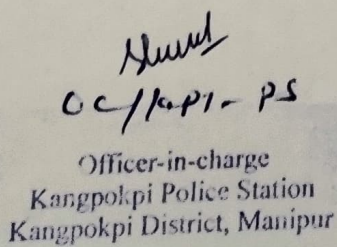 OC/KPI- PS
Officer-in-charge
Kangpokpi Police Station
Kangpokpi District, Manipur